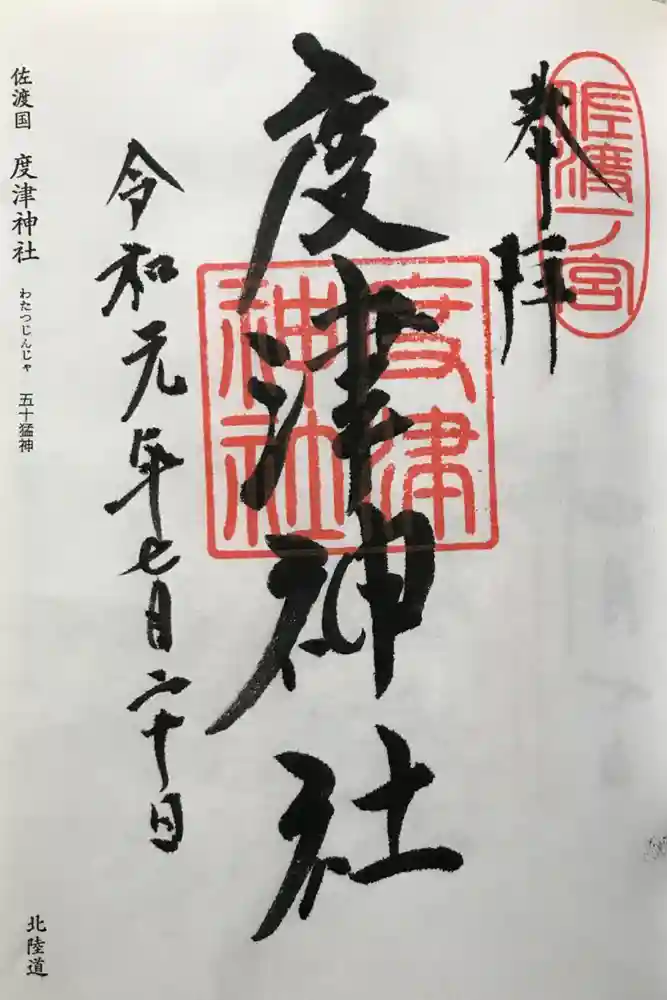 佐渡一ノ宮
奉拝
度津神社
度津神社
令和元年七月二十日
佐渡国 度津神社 わたつじんじゃ 五十猛神
北陸道